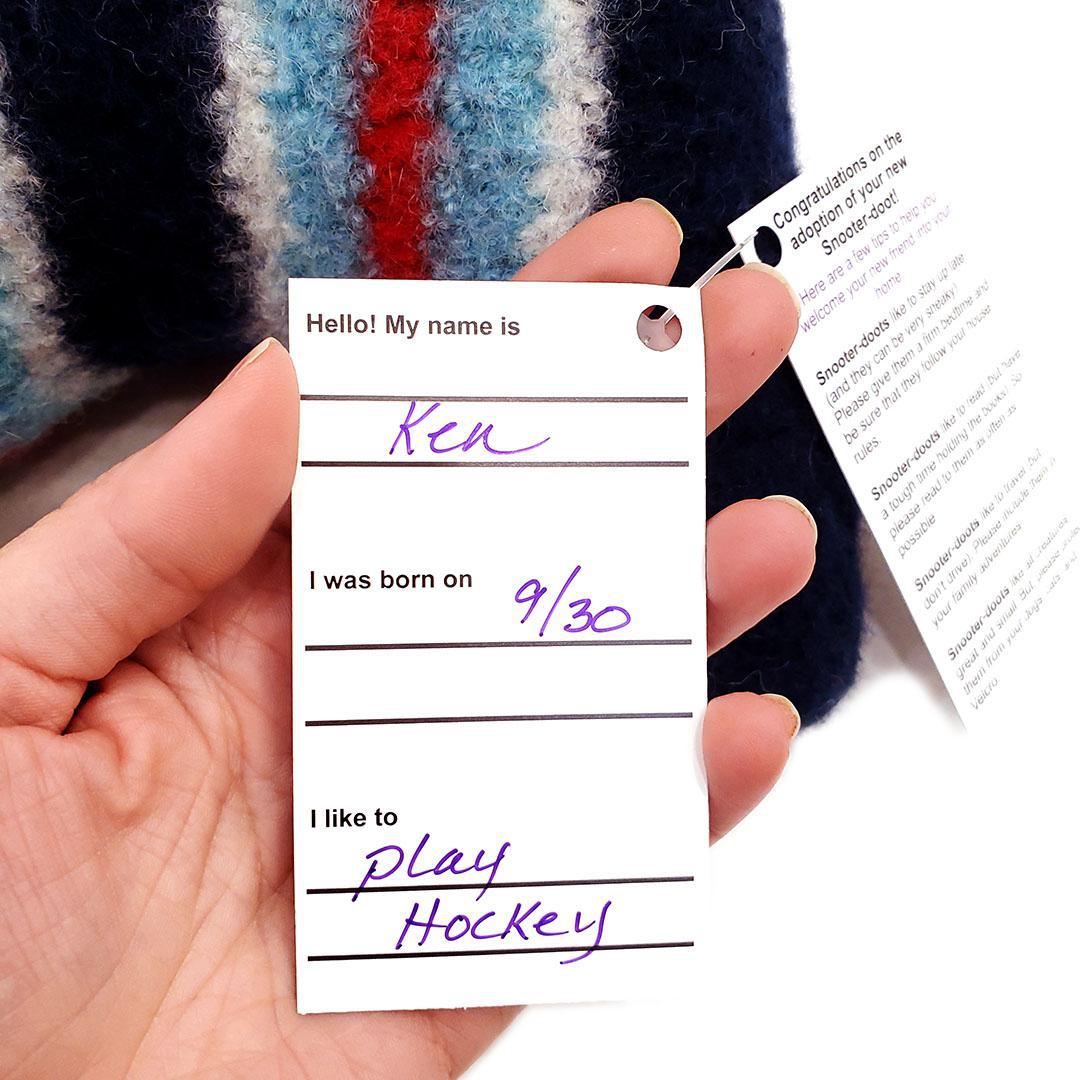 Hello! My name is
Ken
I was born on
9/30
I like to
play
Hockey
Congratulations on the
adoption of your new
Snooter-doot!
Here are a few tips to help you
welcome your new friend into your
home
Snooter-doots like to stay up late
(and they can be very sneaky)
Please give them a firm bedtime and
be sure that they follow your house
rules.
Snooter-doots like to read but have
a tough time holding the books. So
please read to them as often as
possible
Snooter-doots like to travel but
don't drive). Please include them in
your family adventures
Snooter-doots like all creatures
great and small. But, please
them from your dogs, cats, and
velcro.